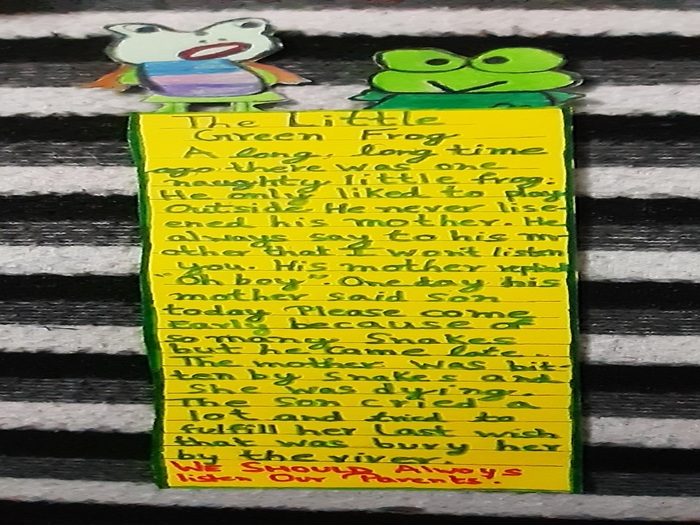 The Little
Green Frog
A long, long time
ago there was one
naughty little frog.
He only liked to play
Outside. He never lise-
ened his mother. He
always say to his m-
other that I won't listen
you. His mother replied
"Oh boy". One day his
mother said Son
today Please come
early because of
so many Snakes
but he came late.
The mother was bit-
ten by Snakes and
She was dying.
The Son cried a
lot and tried to
fulfill her last wish
that was bury her
by the river.
We Should Always
listen Our Parents.